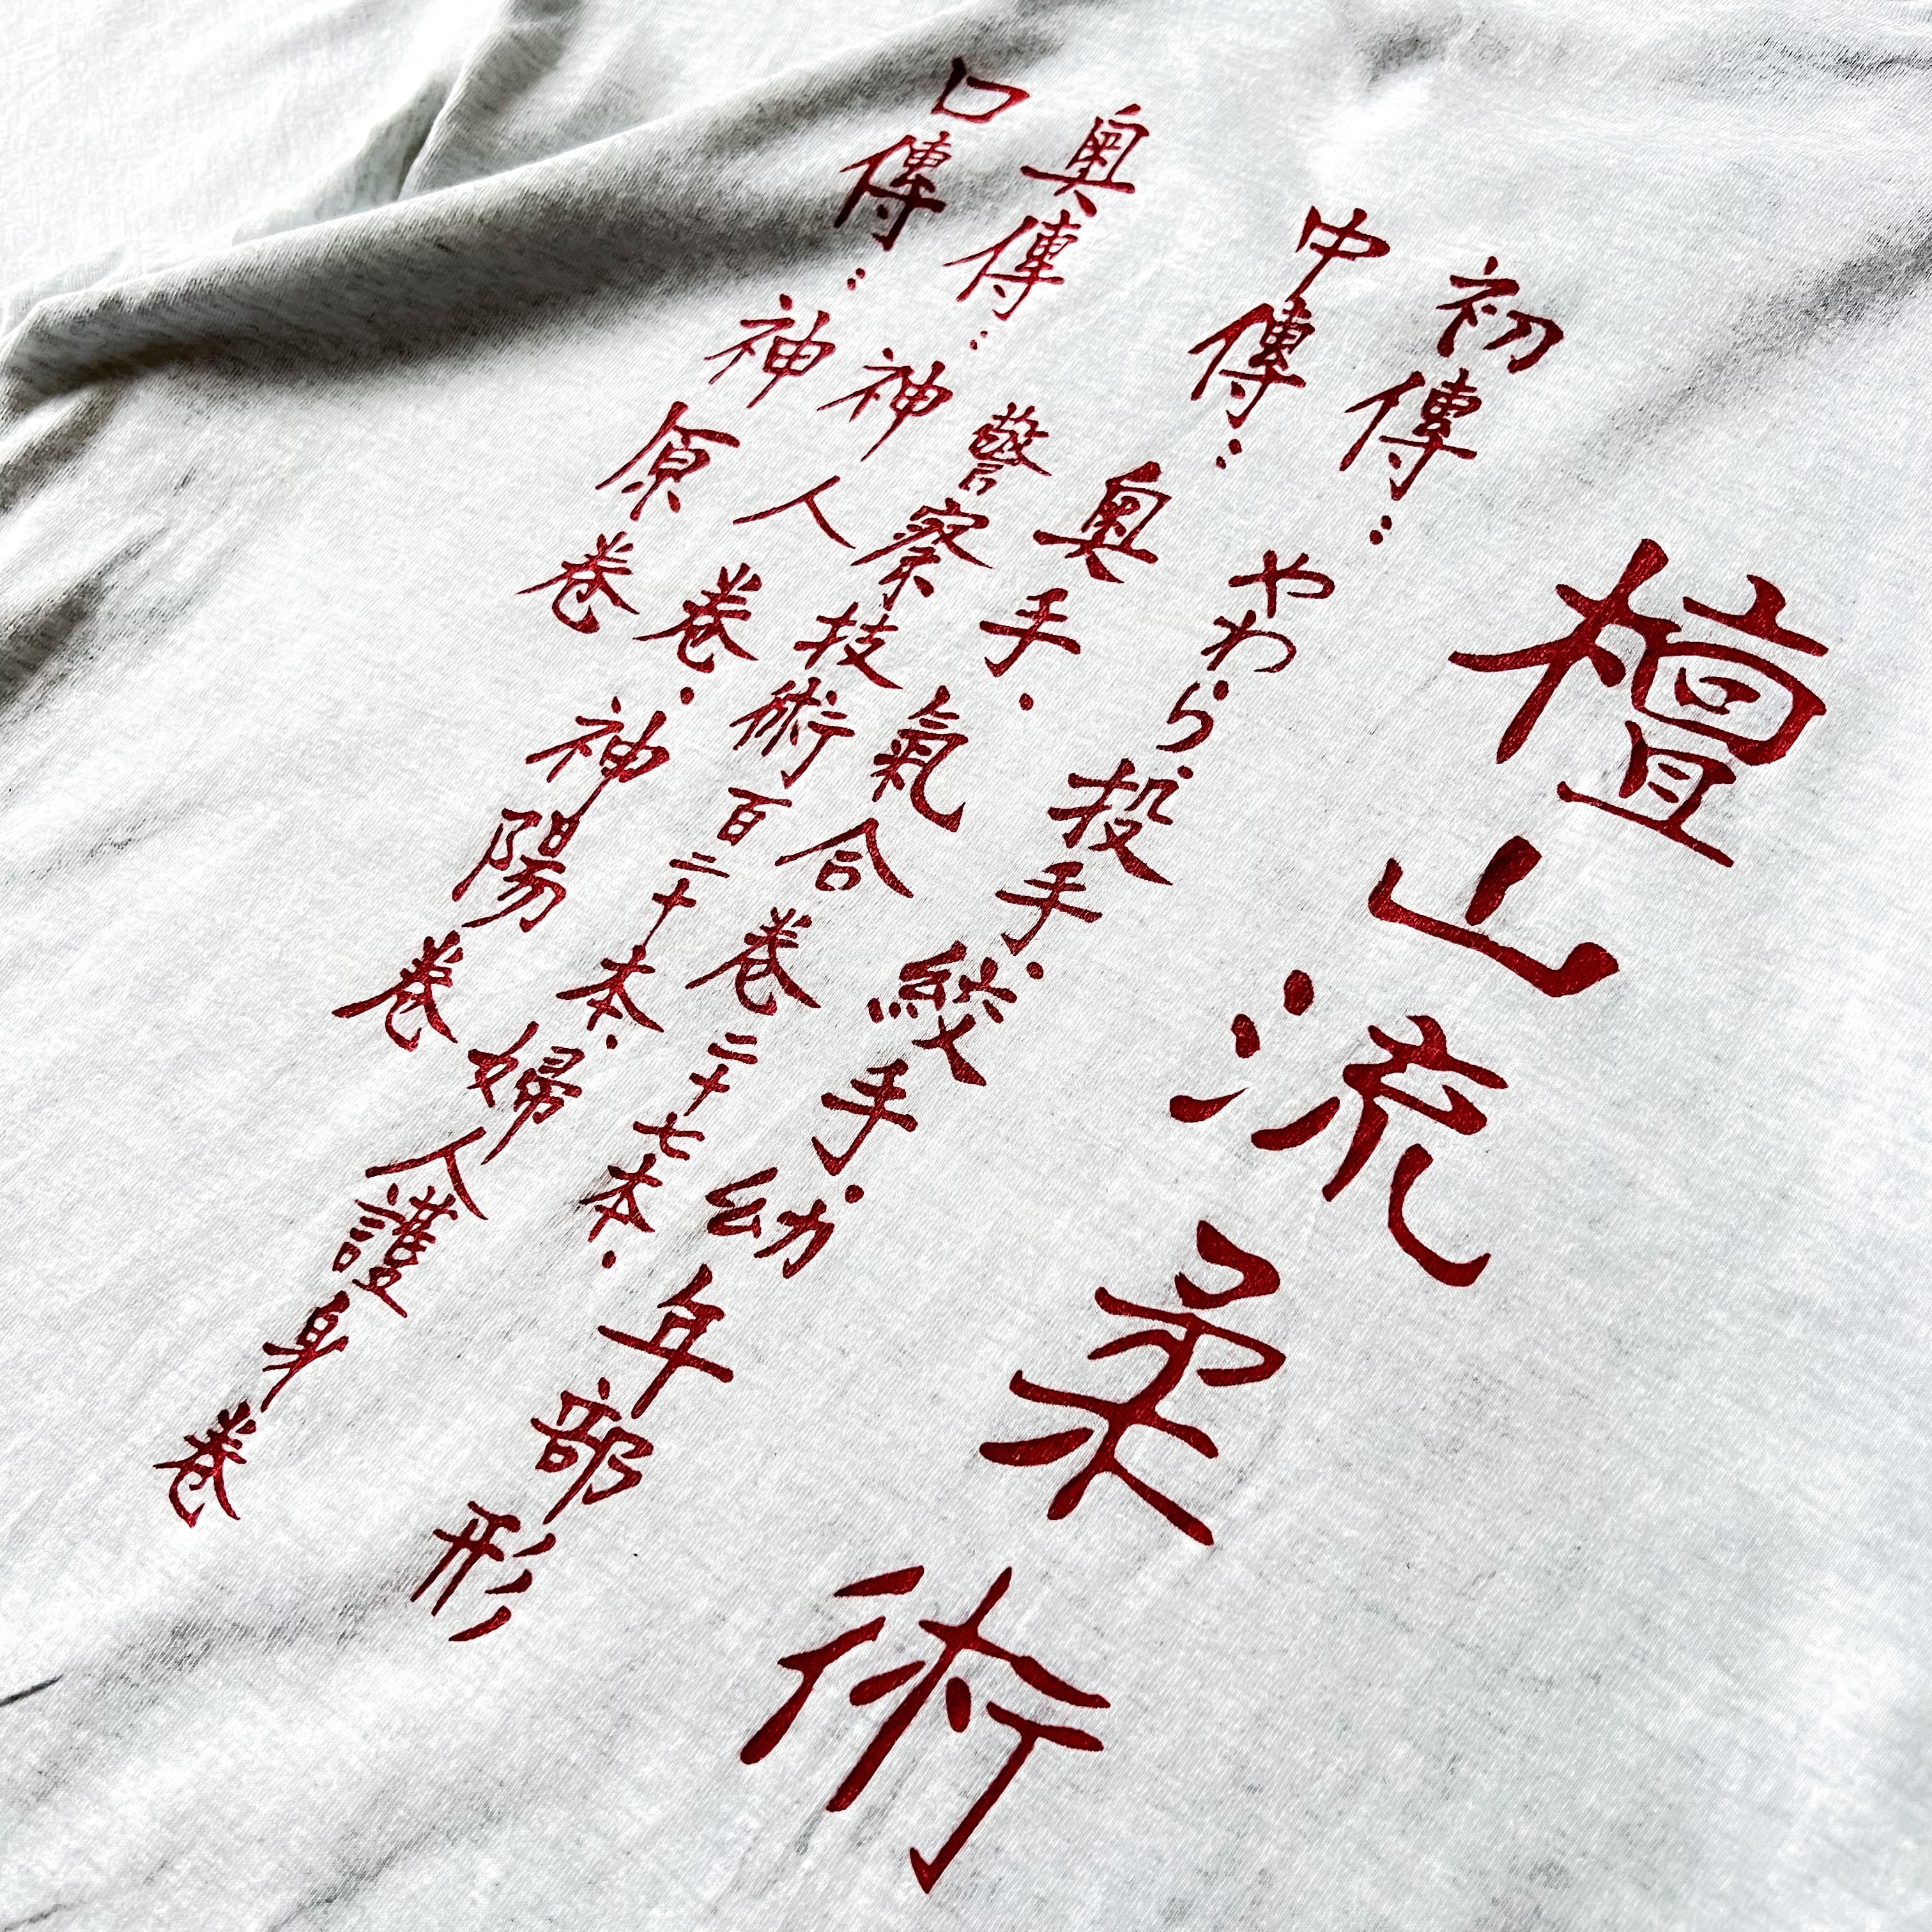 檀山流柔術
初傳… やわら・投手・絞手・幼年部形
中傳… 奥手・氣合巻二十七本・
警察技術百二十本・婦人護身巻
奥傳… 神人巻・神陽巻
口傳… 神原巻